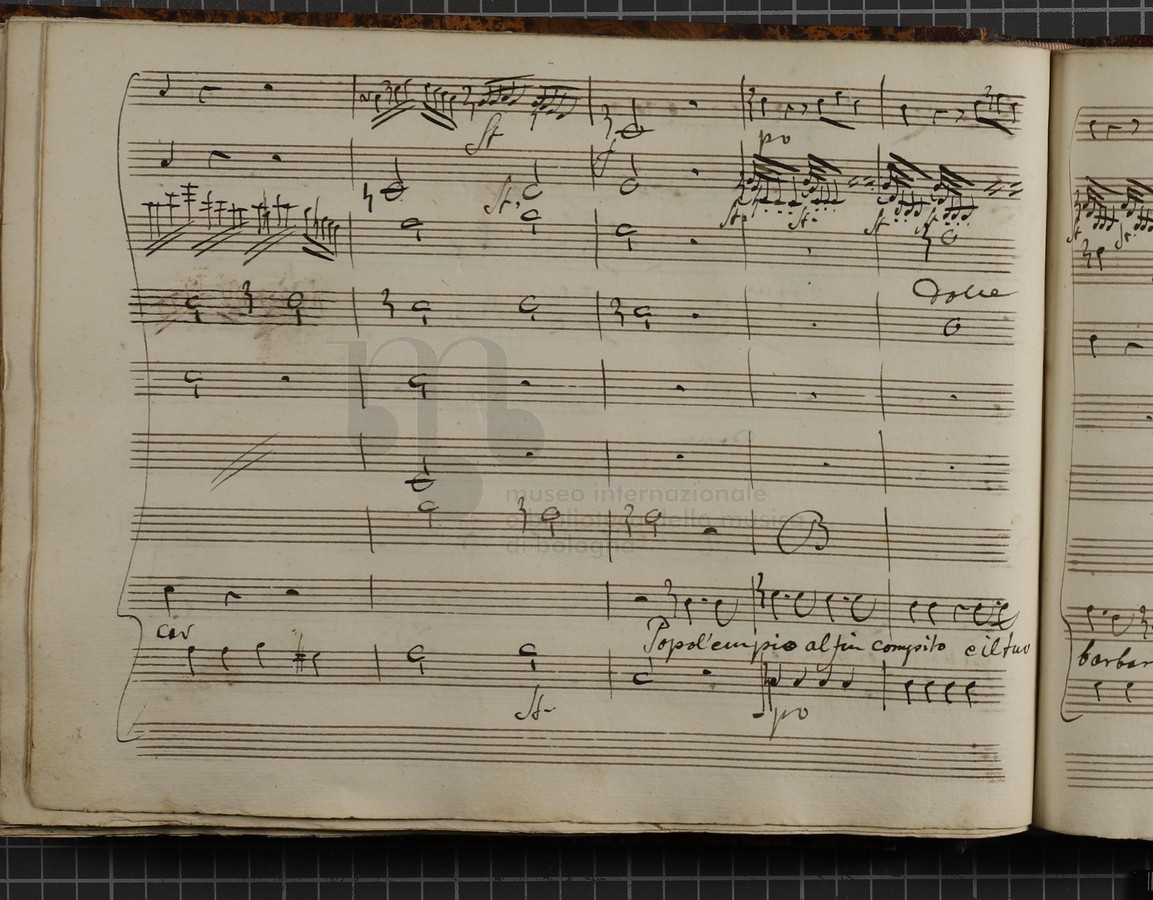 po
Dolce
museo internazionale
e biblioteca della musica
di bologna
car
Popol'empio al fin compito e il tuo
barbar
po